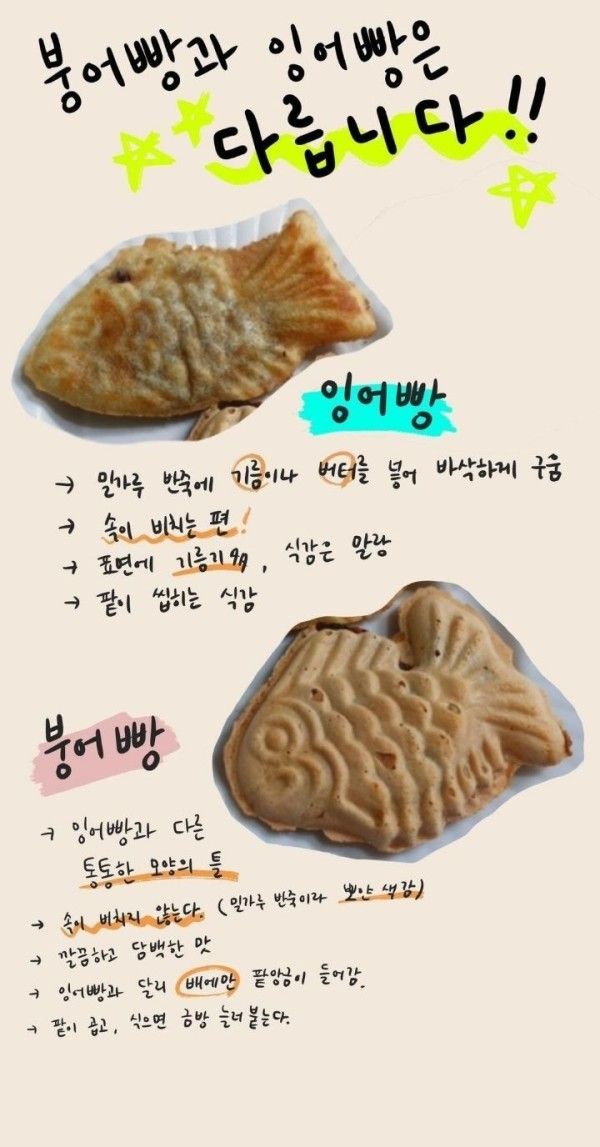 붕어빵과 잉어빵은
다릅니다!!
잉어빵
→ 밀가루 반죽에 기름이나 버터를 넣어 바삭하게 구움
→ 속이 비치는 편!
→ 표면에 기름기有, 식감은 말랑
→ 팥이 씹히는 식감
붕어빵
→ 잉어빵과 다른
통통한 모양의 틀
→ 속이 비치지 않는다. (밀가루 반죽이라 뽀얀 색감)
→ 깔끔하고 담백한 맛
→ 잉어빵과 달리 배에만 팥앙금이 들어감.
→ 팥이 곱고, 식으면 금방 눌러붙는다.